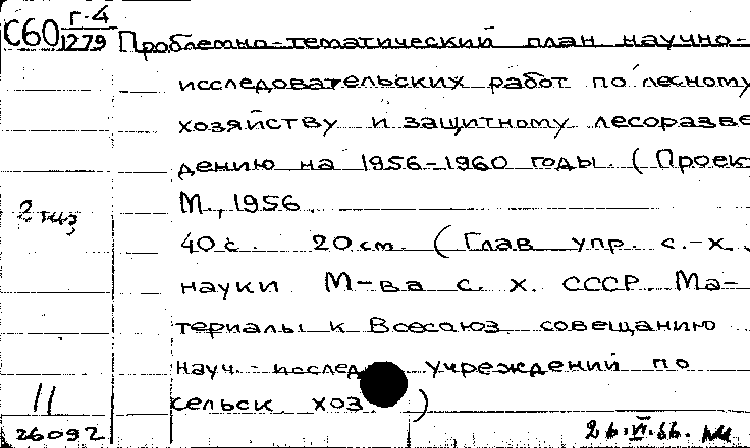 С60 Г-4
1279
Проблемно-тематический план научно-
исследовательских работ по лесному
хозяйству и защитному лесоразве
дению на 1956-1960 годы. (Проек
М., 1956.
2 экз
40 с. 20 см. (Глав упр. с.-х.
науки М-ва с. х. СССР. Ма-
териалы к Всесоюз. совещанию
науч.-исслед. учреждений по
сельск. хоз.)
11
26092
26.VI.66.